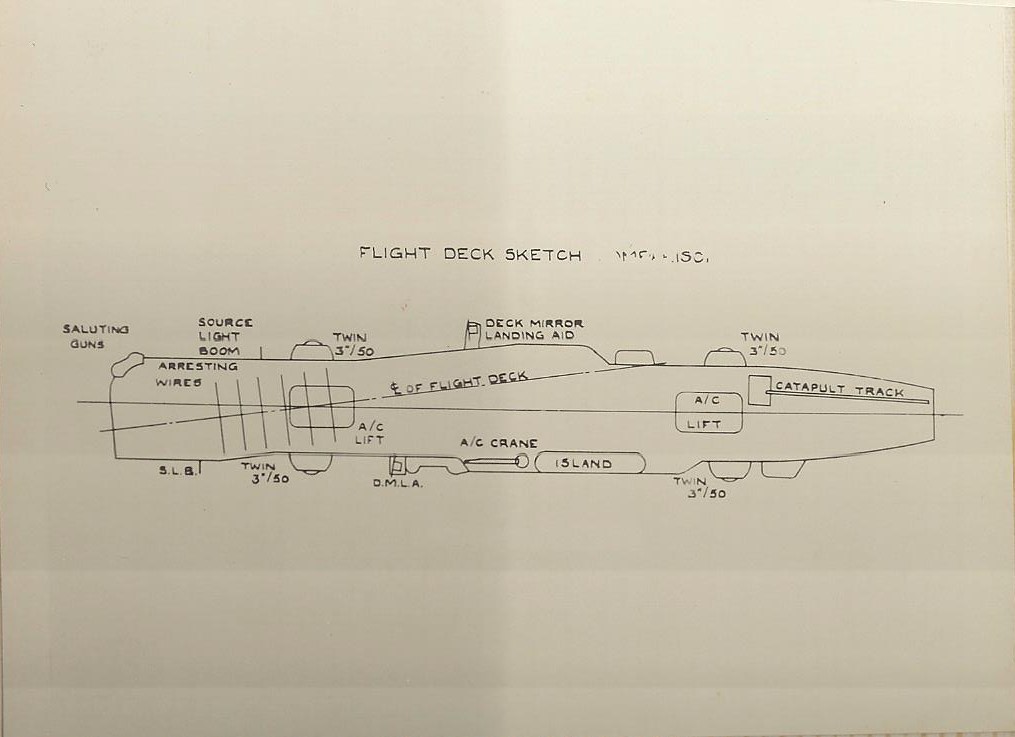 FLIGHT DECK SKETCH
SALUTING
GUNS
SOURCE
LIGHT
BOOM
TWIN
3"/50
DECK MIRROR
LANDING AID
TWIN
3"/50
ARRESTING
WIRES
℄ OF FLIGHT DECK
CATAPULT TRACK
A/C
LIFT
A/C
LIFT
A/C CRANE
ISLAND
S.L.B.
TWIN
3"/50
D.M.L.A.
TWIN
3"/50